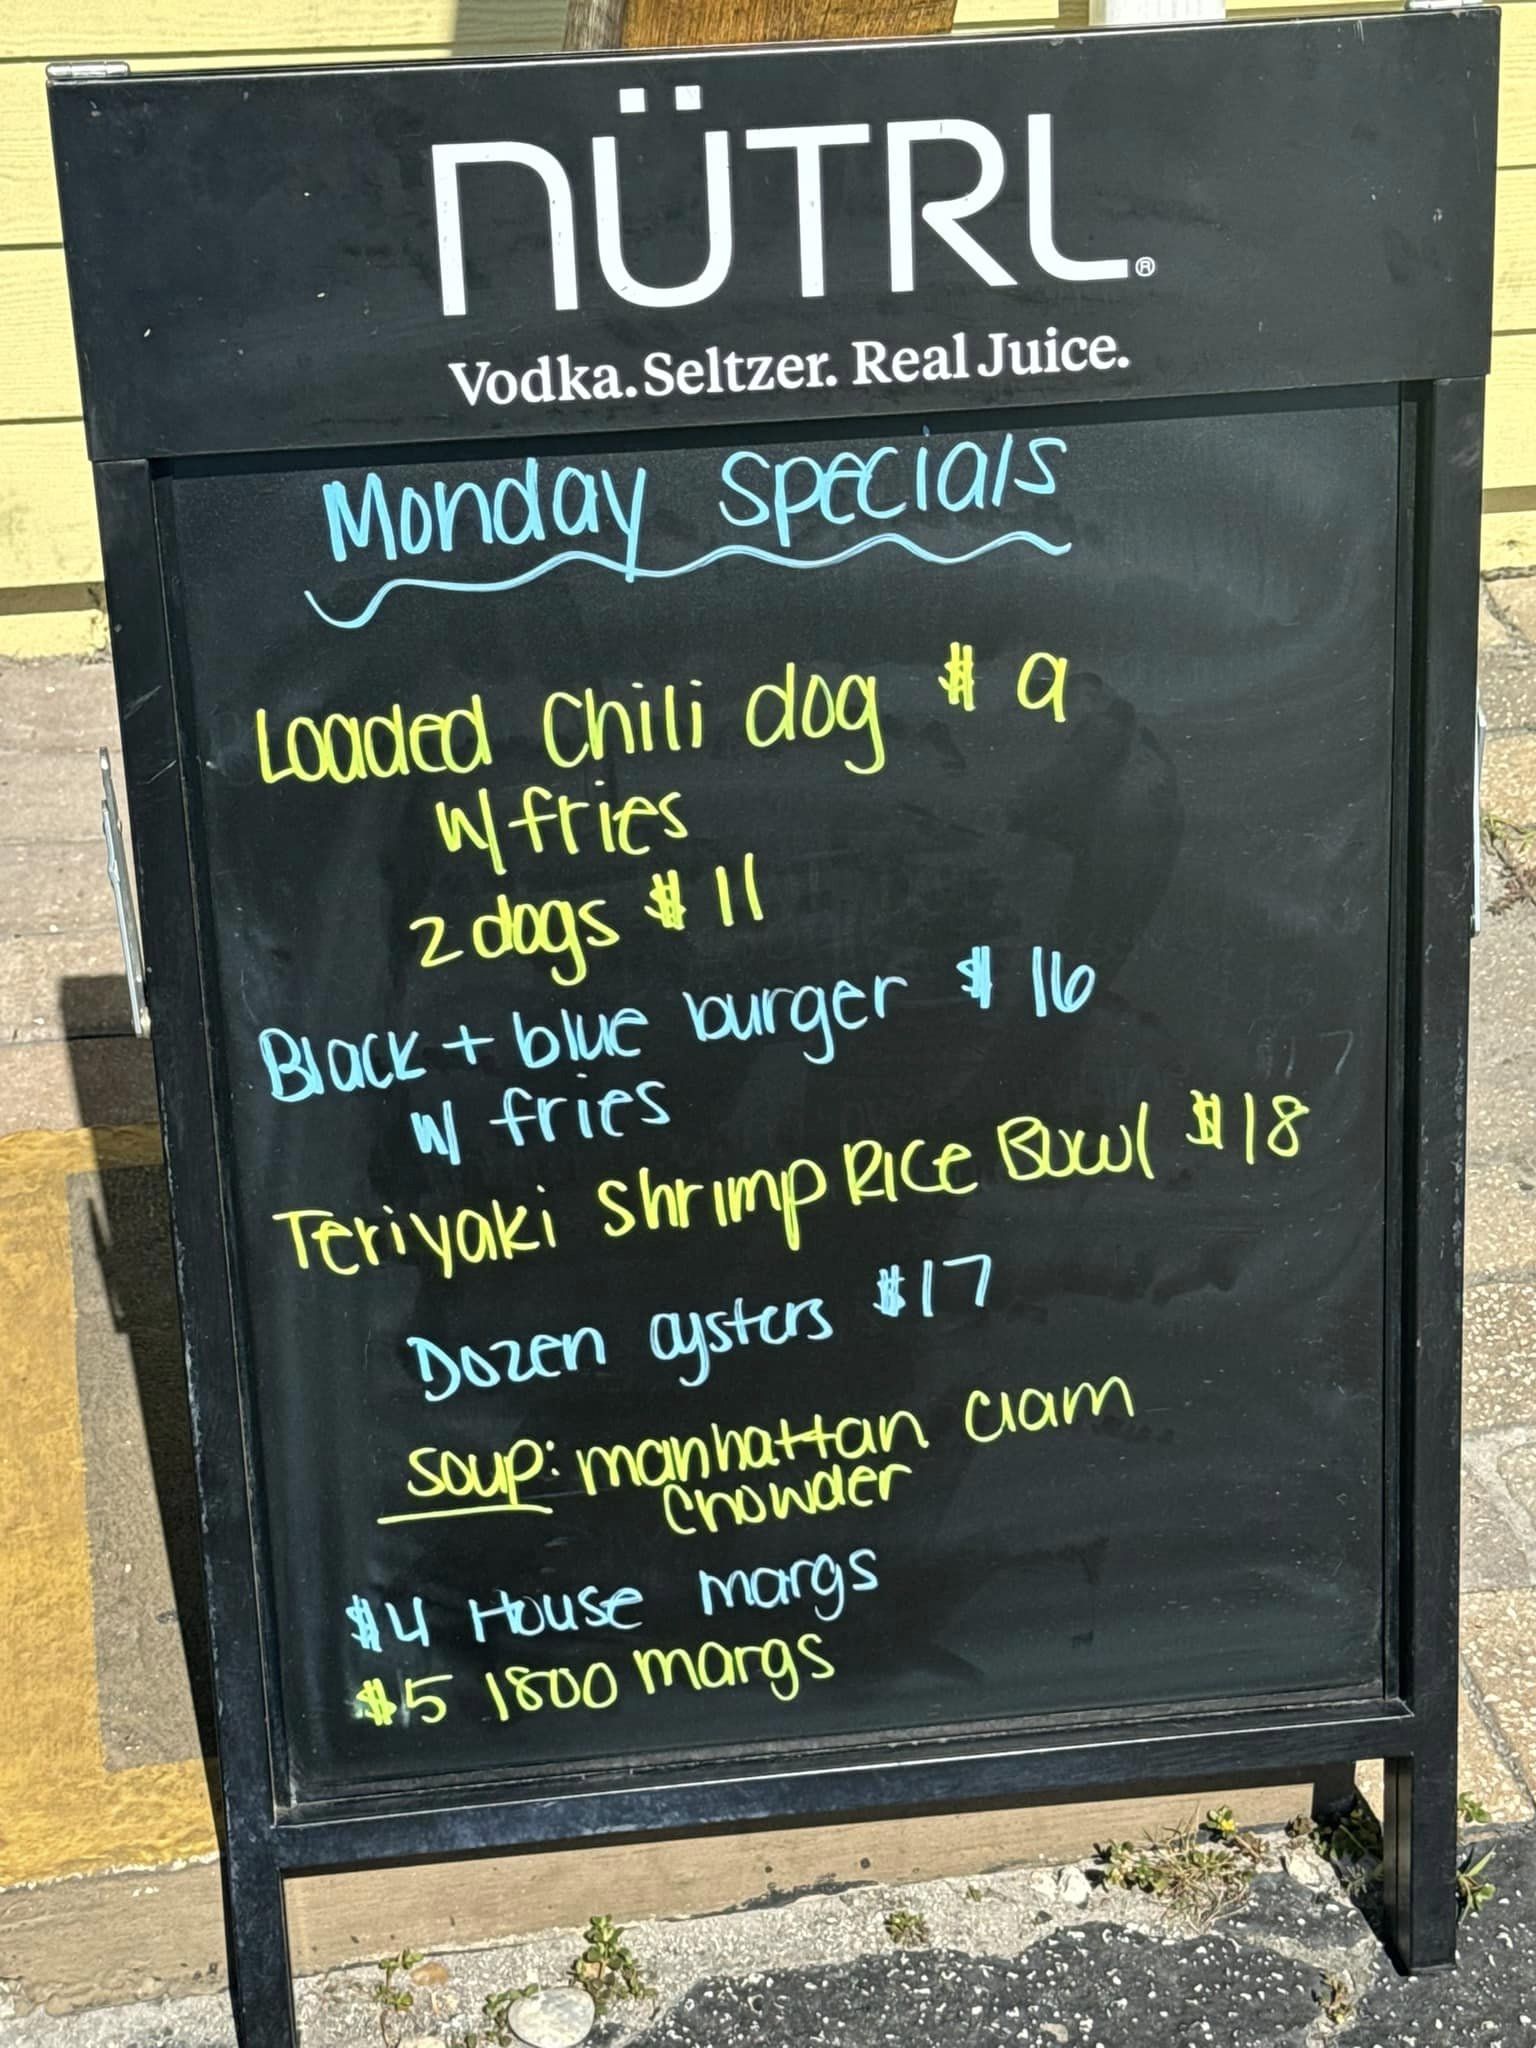 NÜTRL®
Vodka. Seltzer. Real Juice.
Monday specials
Loaded chili dog $ 9
w/ fries
2 dogs $ 11
Black + blue burger $ 16
w/ fries
Teriyaki shrimp Rice Bowl $18
Dozen oysters $17
soup: manhattan clam
chowder
$4 House margs
$5 1800 margs